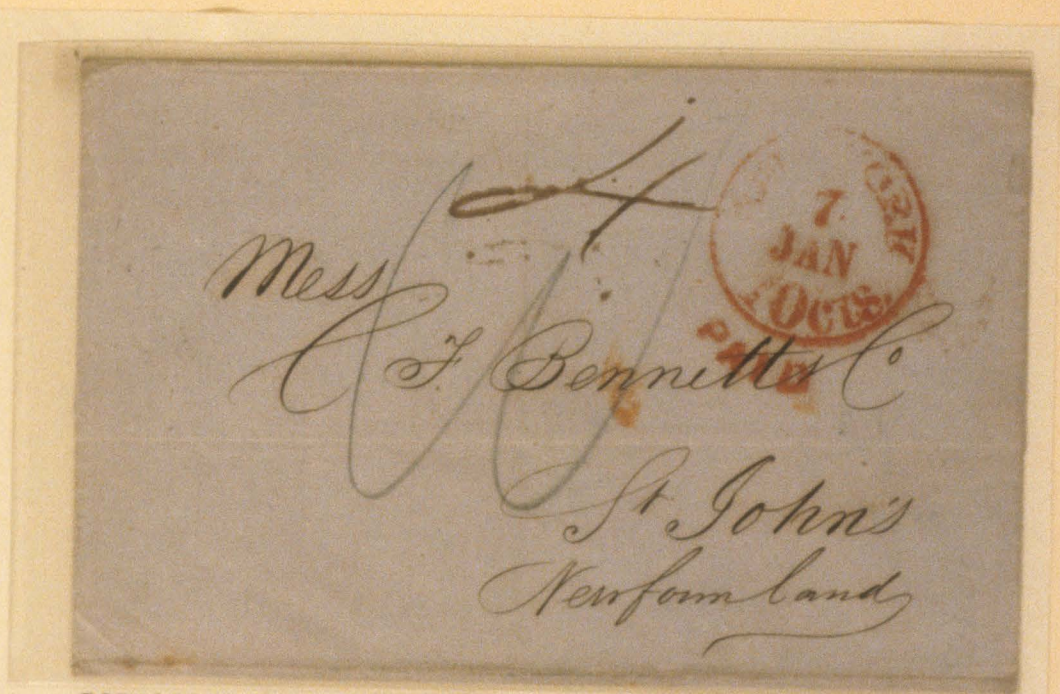 4
NEW YORK
7
JAN
10cts.
PAID
Mess
C F Bennett & Co
St John's
Newfoundland